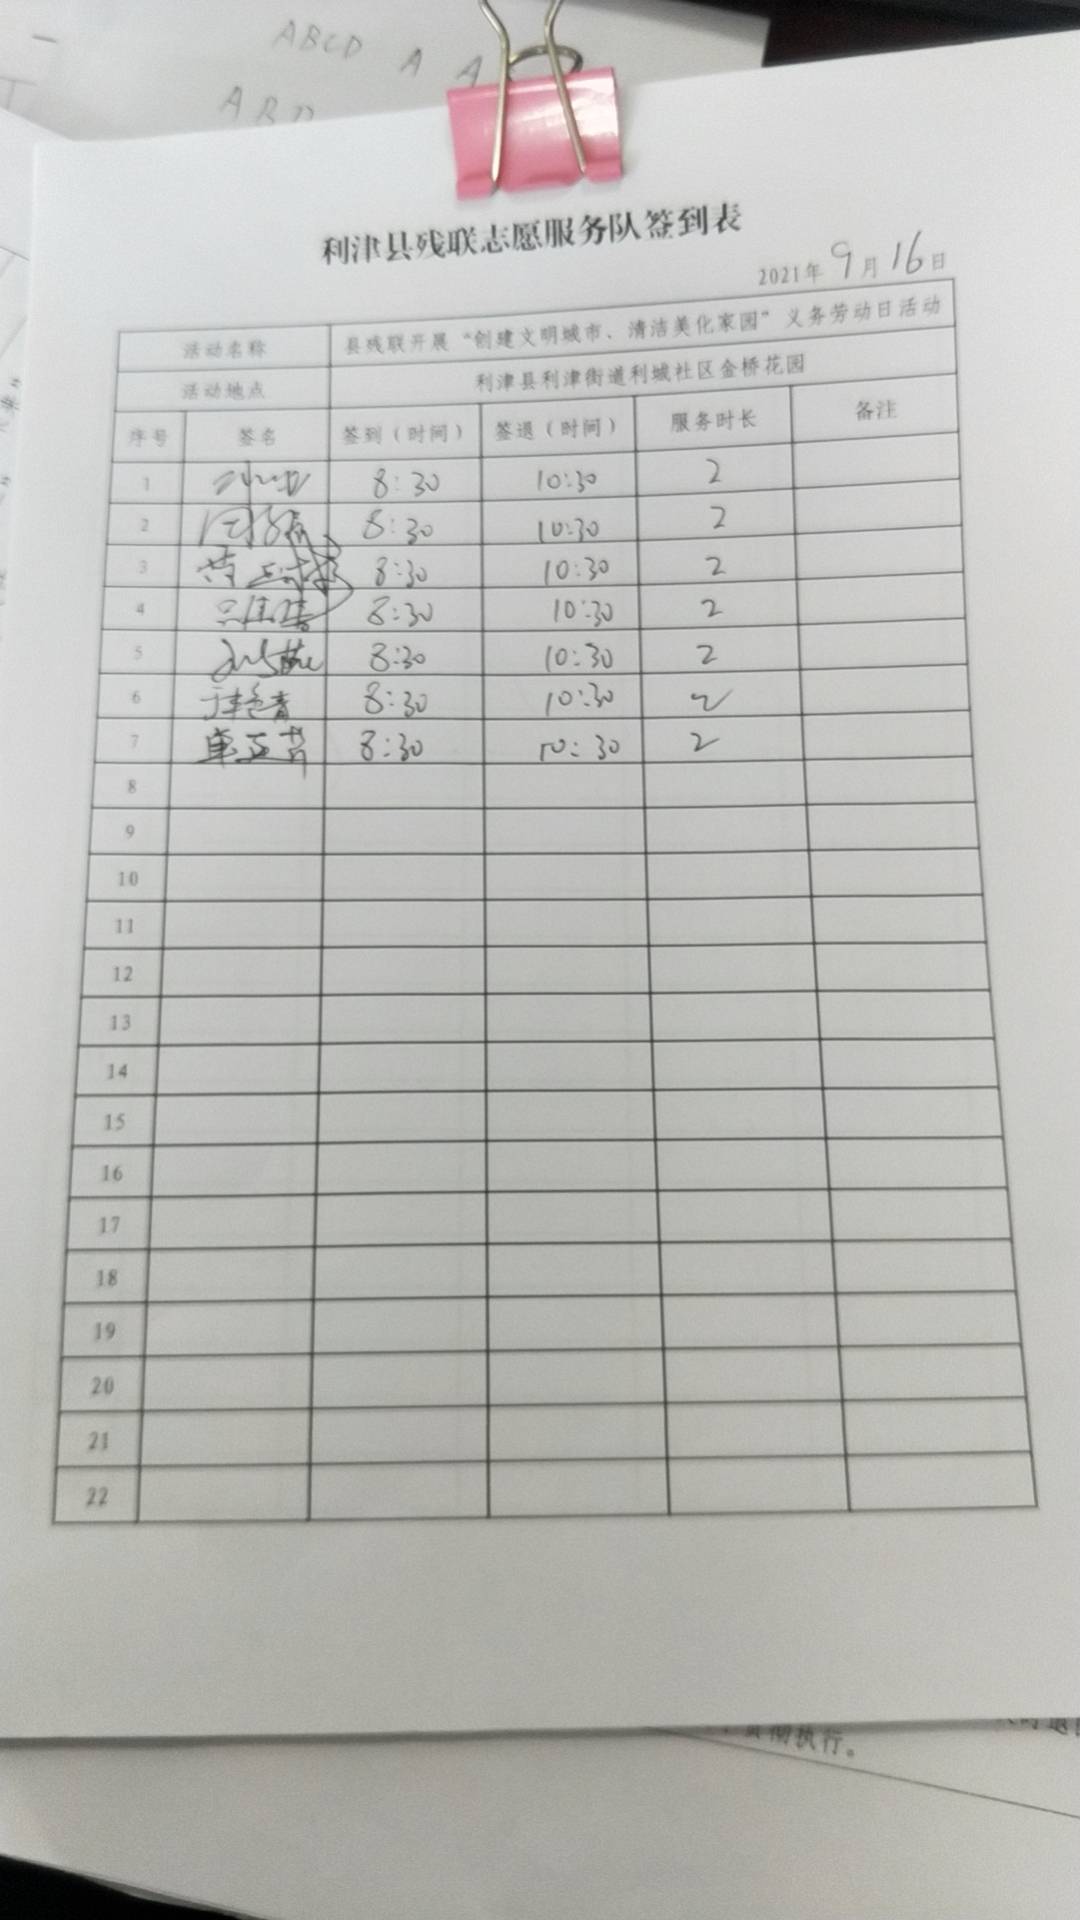 ABCD A A
ABD
利津县残联志愿服务队签到表
2021年 9月 16日
活动名称 县残联开展“创建文明城市、清洁美化家园”义务劳动日活动
活动地点 利津县利津街道利城社区金桥花园
序号 签名 签到（时间） 签退（时间） 服务时长 备注
1 8:30 10:30 2
2 8:30 10:30 2
3 8:30 10:30 2
4 8:30 10:30 2
5 8:30 10:30 2
6 8:30 10:30 2
7 8:30 10:30 2
8
9
10
11
12
13
14
15
16
17
18
19
20
21
22
彻执行。